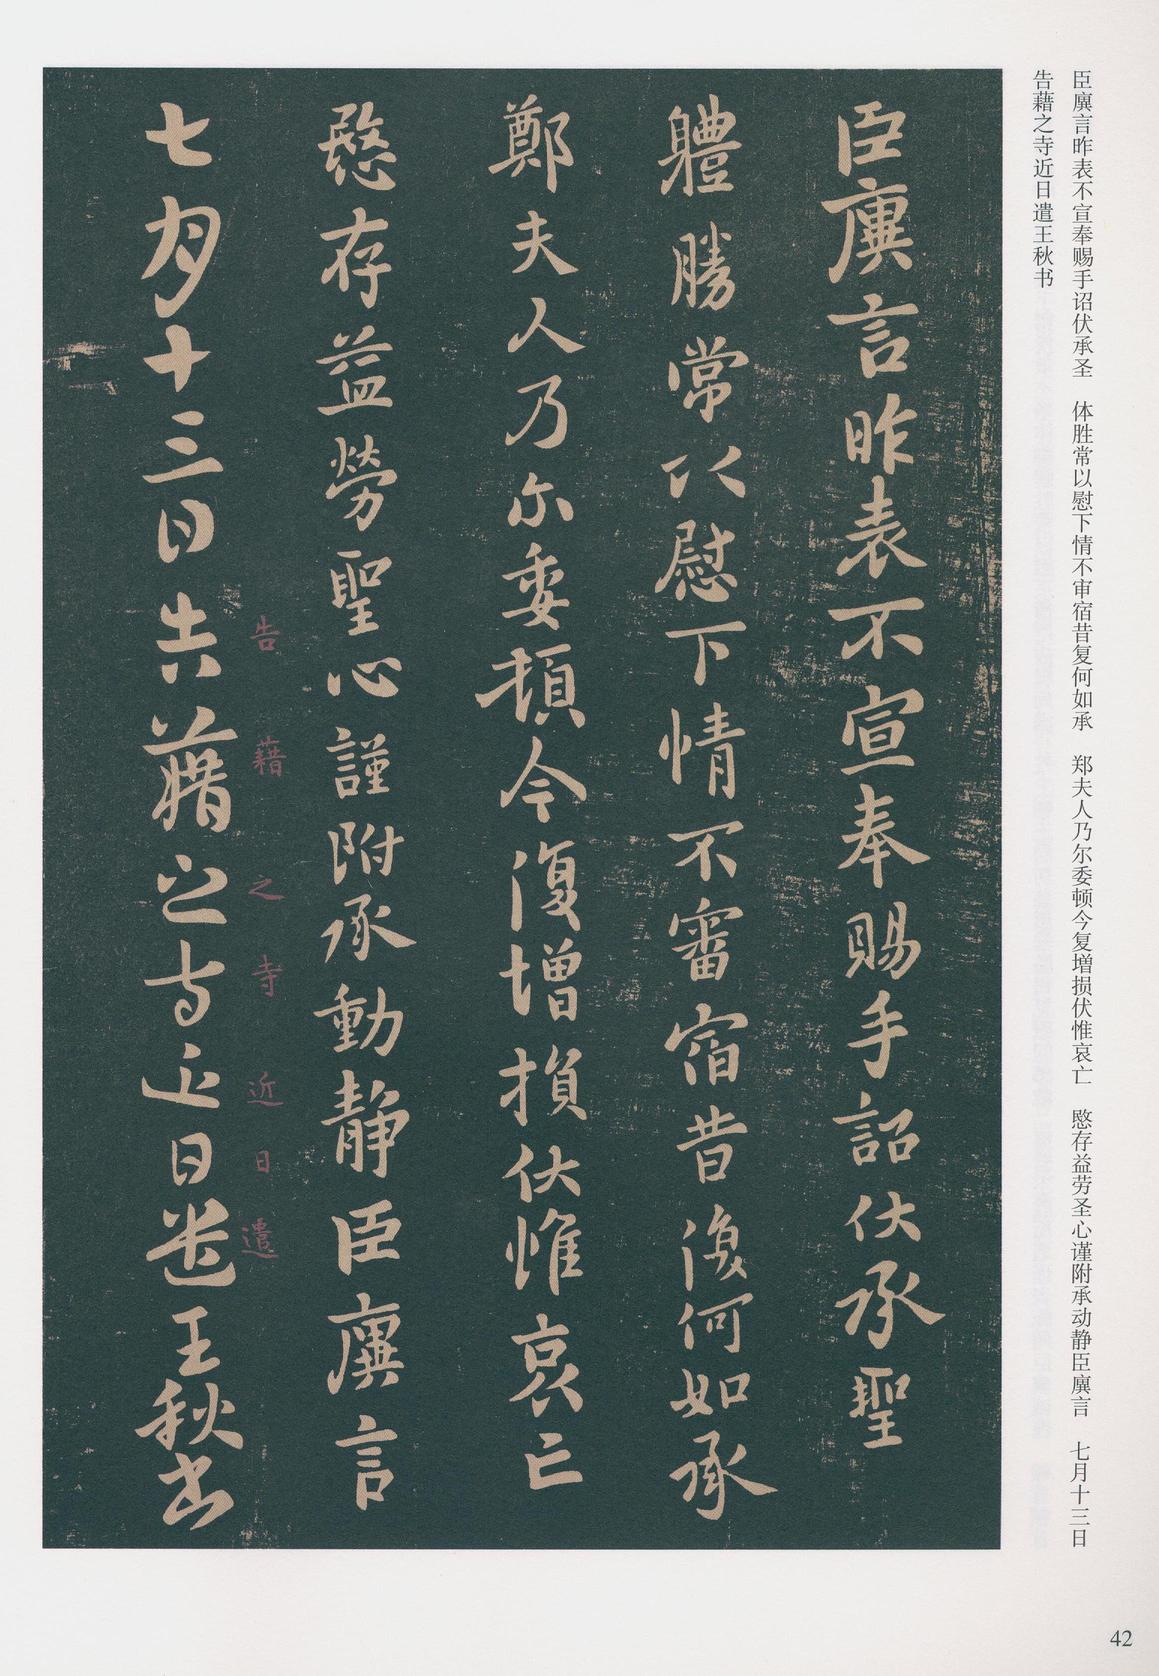 臣廙言昨表不宣奉赐手诏伏承圣　体胜常以慰下情不审宿昔复何如承　郑夫人乃尔委顿今复增损伏惟哀亡　愍存益劳圣心谨附承动静臣廙言　七月十三日
告藉之寺近日遣王秋书
臣廙言昨表不宣奉賜手詔伏承聖
體勝常以慰下情不審宿昔復何如承
鄭夫人乃尔委頓今復增損伏惟哀亡
愍存益勞聖心謹附承動静臣廙言
告藉之寺近日遣
七月十三日告藉之寺近日遣王秋书
42